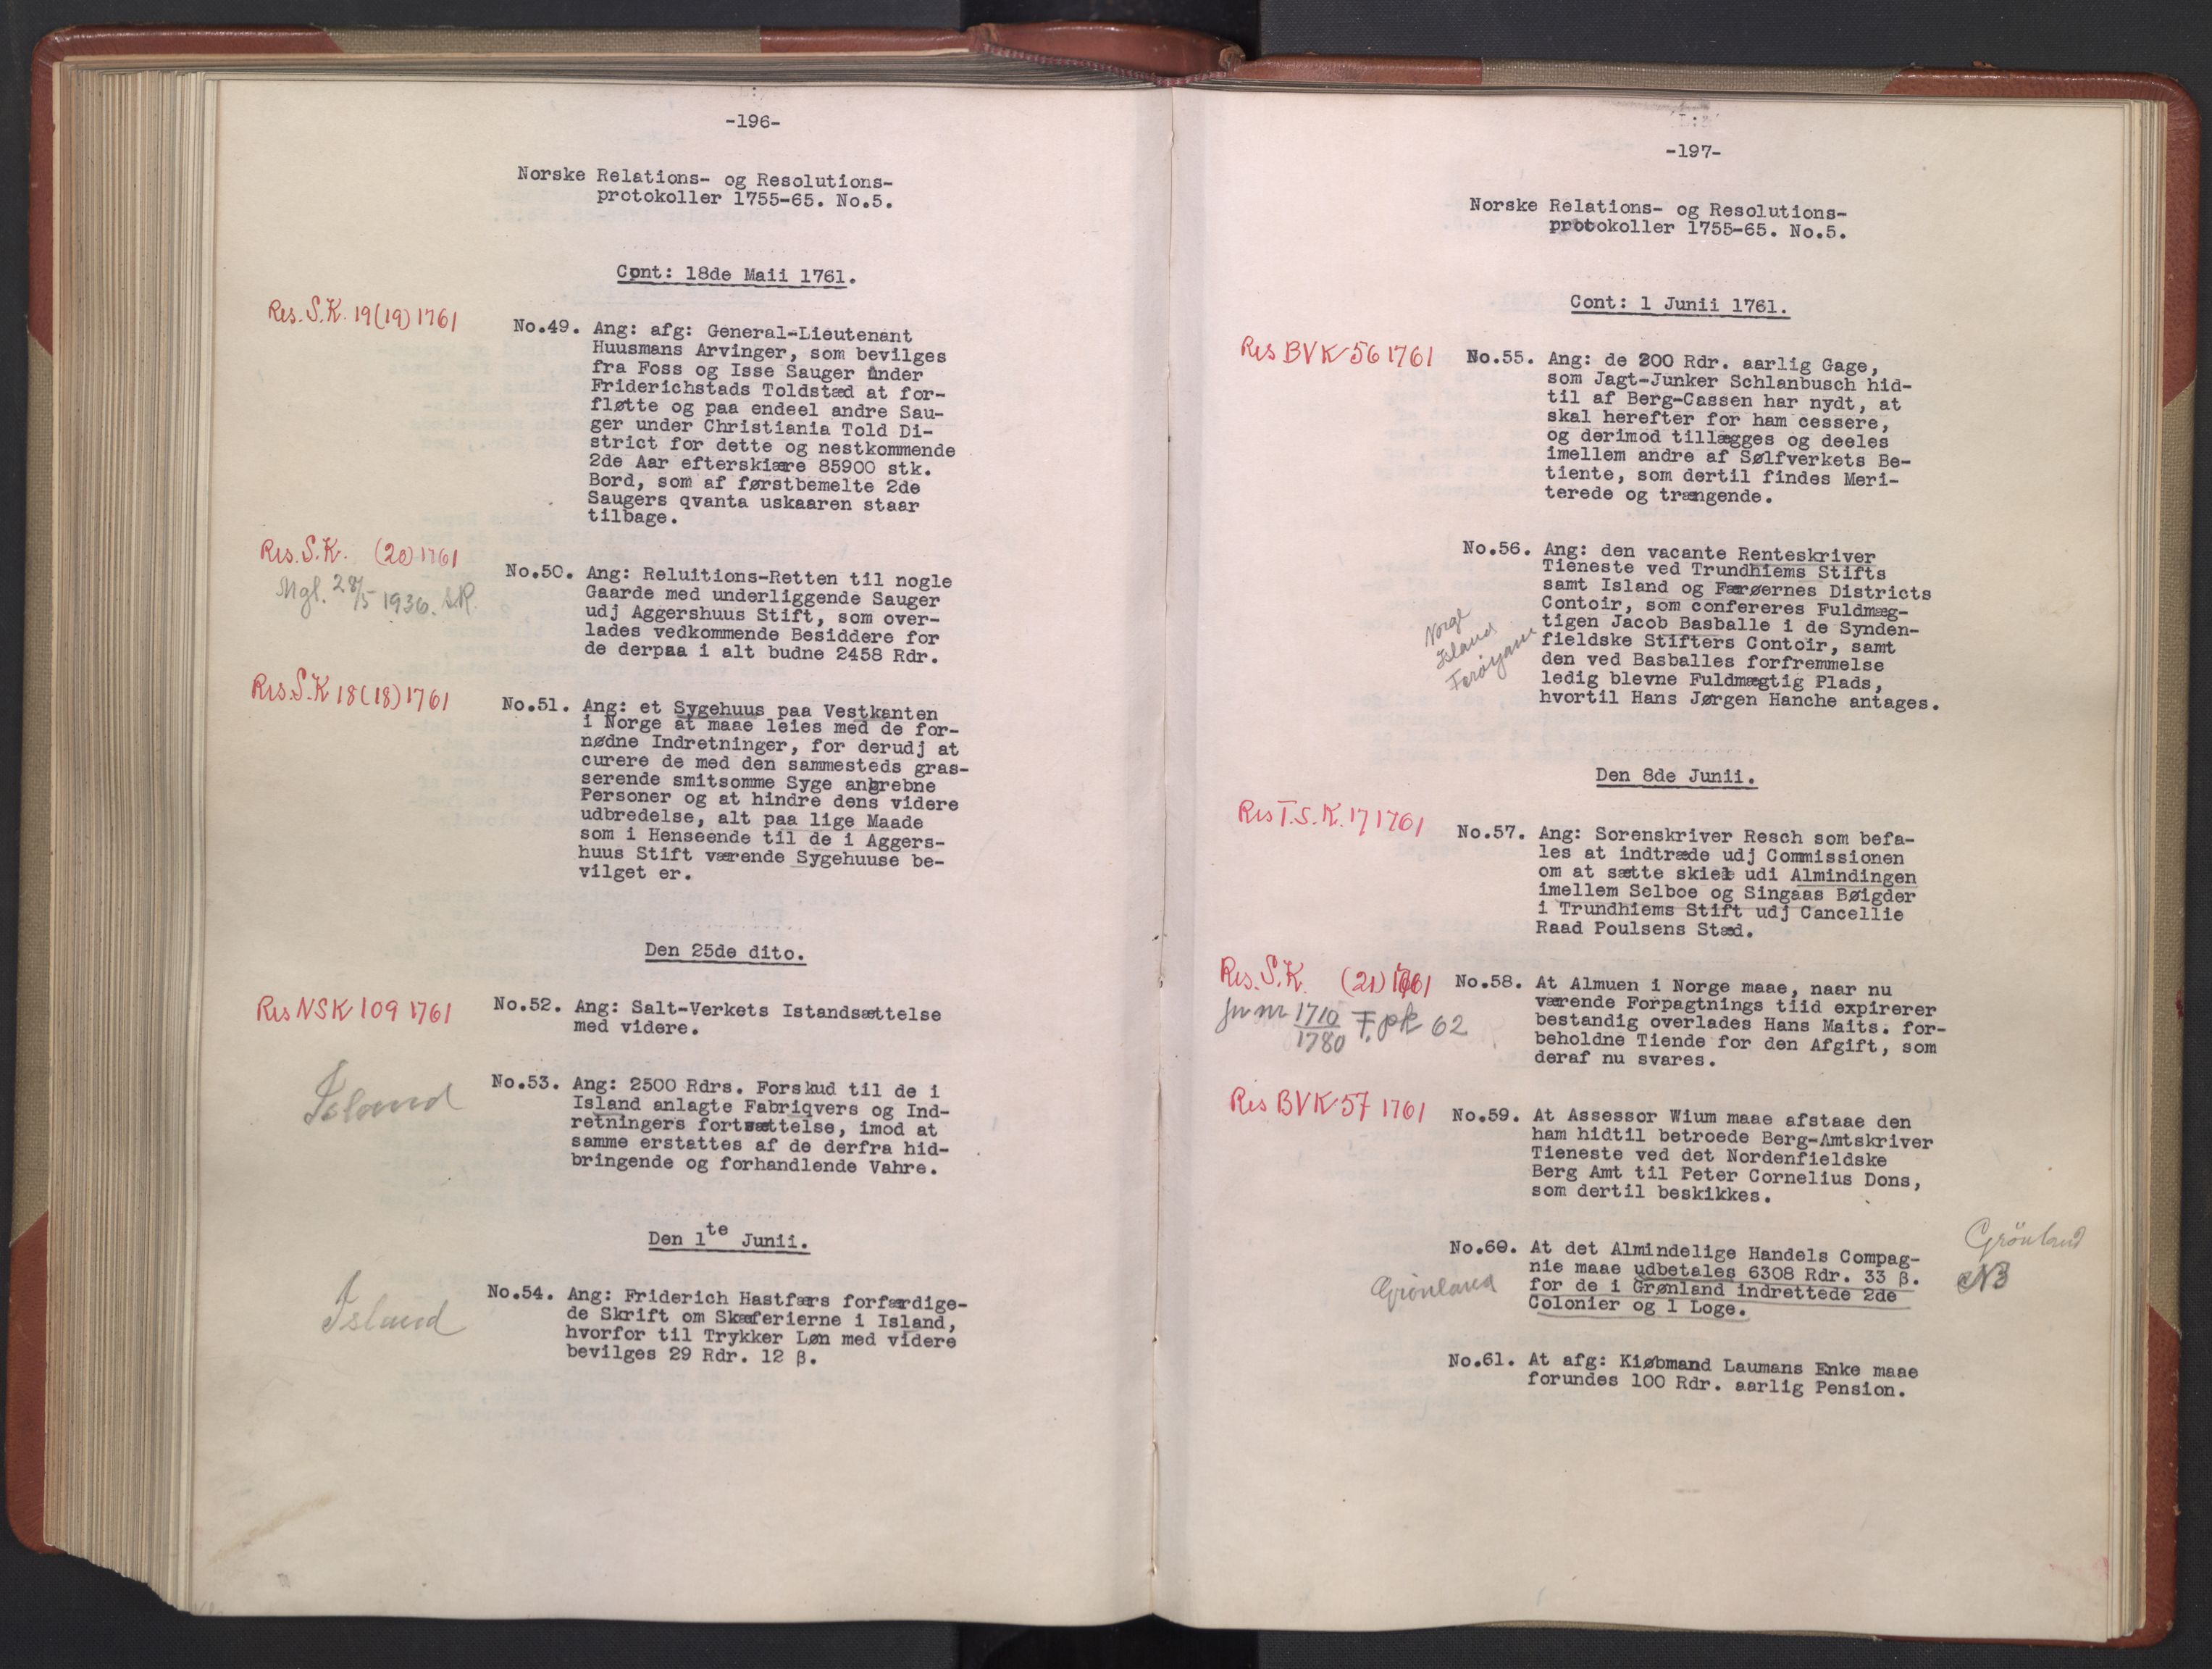 -196-
Norske Relations- og Resolutions-
protokoller 1755-65. No.5.
Cont: 18de Maii 1761.
Res. S.K. 19(19) 1761
No.49. Ang: afg: General-Lieutenant
Huusmans Arvinger, som bevilges
fra Foss og Isse Sauger under
Friderichstads Toldstæd at for-
fløtte og paa endeel andre Sau-
ger under Christiania Told Di-
strict for dette og nestkommende
2de Aar efterskiære 85900 stk.
Bord, som af førstbemelte 2de
Saugers qvanta uskaaren staar
tilbage.
Res. S.K. (20) 1761
Mgl. 28/5 1936. S.R.
No.50. Ang: Reluitions-Retten til nogle
Gaarde med underliggende Sauger
udj Aggershuus Stift, som over-
lades vedkommende Besiddere for
de derpaa i alt budne 2458 Rdr.
Res. S.K 18(18) 1761
No.51. Ang: et Sygehuus paa Vestkanten
i Norge at maae leies med de for-
nødne Indretninger, for derudj at
curere de med den sammesteds gras-
serende smitsomme Syge angrebne
Personer og at hindre dens videre
udbredelse, alt paa lige Maade
som i Henseende til de i Aggers-
huus Stift værende Sygehuuse be-
vilget er.
Den 25de dito.
Res NSK 109 1761
No.52. Ang: Salt-Verkets Istandsættelse
med videre.
Island
No.53. Ang: 2500 Rdrs. Forskud til de i
Island anlagte Fabriqvers og Ind-
retningers fortsættelse, imod at
samme erstattes af de derfra hid-
bringende og forhandlende Vahre.
Den 1te Junii.
Island
No.54. Ang: Friderich Hastfærs forfærdige-
de Skrift om Skæferierne i Island,
hvorfor til Trykker Løn med videre
bevilges 29 Rdr. 12 β.
-197-
Norske Relations- og Resolutions-
protokoller 1755-65. No.5.
Cont: 1 Junii 1761.
Res BVK 56 1761
No.55. Ang: de 200 Rdr. aarlig Gage,
som Jagt-Junker Schlanbusch hid-
til af Berg-Cassen har nydt, at
skal herefter for ham cessere,
og derimod tillægges og deeles
imellem andre af Sølfverkets Be-
tiente, som dertil findes Meri-
terede og trængende.
No.56. Ang: den vacante Renteskriver
Tieneste ved Trundhiems Stifts
samt Island og Færøernes Districts
Contoir, som confereres Fuldmæg-
tigen Jacob Basballe i de Synden-
fieldske Stifters Contoir, samt
den ved Basballes forfremmelse
ledig blevne Fuldmægtig Plads,
hvortil Hans Jørgen Hanche antages.
Norge
Island
Færøyane
Den 8de Junii.
Res T.S.K. 17 1761
No.57. Ang: Sorenskriver Resch som befa-
les at indtræde udj Commissionen
om at sætte skiel udi Almindingen
imellem Selboe og Singaas Bøigder
i Trundhiems Stift udj Cancellie
Raad Poulsens Stæd.
Res. S.K. (21) 1761
Jnnr 1710/1780 F. pk 62
No.58. At Almuen i Norge maae, naar nu
værende Forpagtnings tiid expirerer
bestandig overlades Hans Maits. for-
beholdne Tiende for den Afgift, som
deraf nu svares.
Res BVK 57 1761
No.59. At Assessor Wium maae afstaae den
ham hidtil betroede Berg-Amtskriver
Tieneste ved det Nordenfieldske
Berg Amt til Peter Cornelius Dons,
som dertil beskikkes.
Grönland
No.60. At det Almindelige Handels Compag-
nie maae udbetales 6308 Rdr. 33 β.
for de i Grønland indrettede 2de
Colonier og 1 Loge.
Grönland
NB
No.61. At afg: Kiøbmand Laumans Enke maae
forundes 100 Rdr. aarlig Pension.